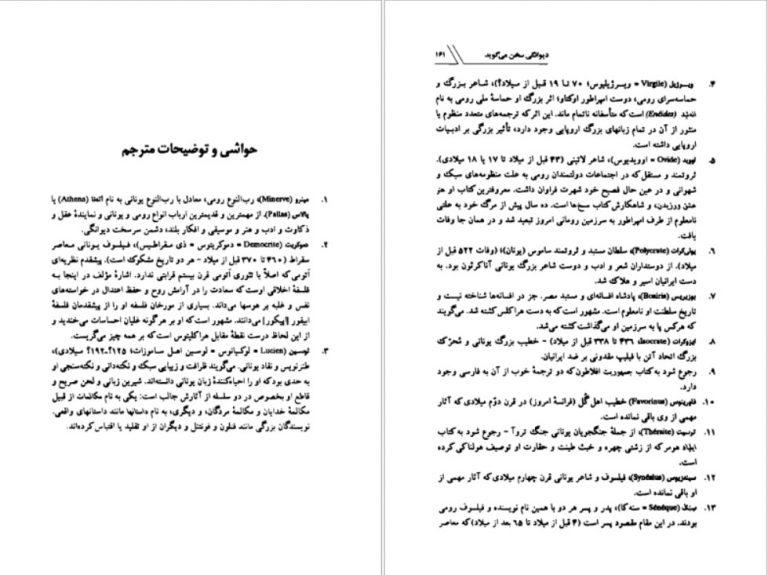 حواشی و توضیحات مترجم
۱. مینرو (Minerve)، رب‌النوع رومی، معادل با رب‌النوع یونانی به نام اتنا (Athena) یا
پالاس (Pallas). از مهمترین و قدیمترین ارباب انواع رومی و یونانی و نمایندهٔ عقل و
ذکاوت و ادب و هنر و موسیقی و افکار بلند، دشمن سرسخت دیوانگی.
۲. دموکریت (Democrite = دموکریتوس = ذی سقراطیس)، فیلسوف یونانی معاصر
سقراط (۴۶۰ تا ۳۷۰ قبل از میلاد - هر دو تاریخ مشکوک است). پیشقدم نظریه‌ای
اتومی که اصلاً با تئوری اتومی قرن بیستم قرابتی ندارد. اشارهٔ مؤلف در اینجا به
فلسفهٔ اخلاقی اوست که سعادت را در آرامش روح و حفظ اعتدال در خواسته‌های
نفس و غلبه بر هوسها می‌داند. بسیاری از مورخان فلسفه او را از پیشقدمان فلسفهٔ
ابیقور [اپیکور] می‌دانند. مشهور است که او بر هرگونه غلیان احساسات می‌خندید و
از این لحاظ درست نقطهٔ مقابل هراکلیتوس است که بر همه چیز می‌گریست.
۳. لوسین (Lucien = لوکیانوس = لوسین اهل ساموزات؛ ۱۲۵؟-۱۹۲؟ میلادی)،
طنزنویس و نقاد یونانی. می‌گویند ظرافت و زیبایی سبک و نکته‌دانی و نکته‌سنجی او
به حدی بود که او را احیاءکنندهٔ زبان یونانی دانسته‌اند. شیرین زبانی و لحن صریح و
قاطع او بخصوص در دو سلسله از آثارش جالب است: یکی به نام مکالمات از قبیل
مکالمهٔ خدایان و مکالمهٔ مردگان، و دیگری، به نام داستانها مانند داستانهای واقعی.
نویسندگان بزرگی مانند فنلون و فونتنل و دیگران از او تقلید یا اقتباس کرده‌اند.
دیوانگی سخن می‌گوید ۱۶۱
۴. ویرژیل (Virgile = ویرژیلیوس؛ ۷۰ تا ۱۹ قبل از میلاد؟)، شاعر بزرگ و
حماسه‌سرای رومی، دوست امپراطور اوکتاو؛ اثر بزرگ او حماسهٔ ملی رومی به نام
است که متأسفانه ناتمام مانده. این اثر که ترجمه‌های متعدد منظوم یا
منثور از آن در تمام زبانهای بزرگ اروپایی وجود دارد، تأثیر بزرگی بر ادبیات
اروپایی داشته است.
۵. اوید (Ovide = اوویدیوس)، شاعر لاتینی (۴۳ قبل از میلاد تا ۱۷ یا ۱۸ میلادی).
ثروتمند و مستقل که در اجتماعات دولتمندان رومی به علت منظومه‌های سبک و
شهوانی و در عین حال فصیح خود شهرت فراوان داشت. معروفترین کتاب او هنر
عشق ورزیدن، و شاهکارش کتاب مسخ‌ها است. ده سال پیش از مرگ خود به علتی
نامعلوم از طرف امپراطور به سرزمین رومانی امروز تبعید شد و در همان جا وفات
یافت.
۶. پولی‌کرات (Polycrate)، سلطان مستبد و ثروتمند ساموس (یونان)؛ (وفات ۵۲۲ قبل از
میلاد). از دوستداران شعر و ادب و دوست شاعر بزرگ یونانی آناکرئون بود. به
دست ایرانیان اسیر و هلاک شد.
۷. بوزیریس (Bosiris)، پادشاه افسانه‌ای و مستبد مصر. جز در افسانه‌ها شناخته نیست و
تاریخ سلطنت او نامعلوم است. مشهور است که به دست هراکلس کشته شد. می‌گویند
که هرکس پا به سرزمین او می‌گذاشت کشته می‌شد.
۸. ایزوکرات (Isocrate، ۴۳۶ تا ۳۳۸ قبل از میلاد) - خطیب بزرگ یونانی و محرک
بزرگ اتحاد آتن با فیلیپ مقدونی بر ضد ایرانیان.
۹. رجوع شود به کتاب جمهوریت افلاطون که دو ترجمهٔ خوب از آن به فارسی وجود
دارد.
۱۰. فاورینوس (Favorinus) خطیب اهل گُل (فرانسهٔ امروز) در قرن دوّم میلادی که آثار
مهمی از وی باقی نمانده است.
۱۱. ترسیت (Thérsite)، از جملهٔ جنگجویان یونانی جنگ تروآ - رجوع شود به کتاب
ایلیاد هومر که از زشتی چهره و خبث طینت و حقارت او توصیف هولناکی کرده
است.
۱۲. سینزیوس (Synésius)، فیلسوف و شاعر یونانی قرن چهارم میلادی که آثار مهمی از
او باقی نمانده است.
۱۳. سنک (Sénéque = سنه‌کا)، پدر و پسر هر دو با همین نام نویسنده و فیلسوف رومی
بودند. در این مقام مقصود پسر است (۴ قبل از میلاد تا ۶۵ بعد از میلاد) که معاصر